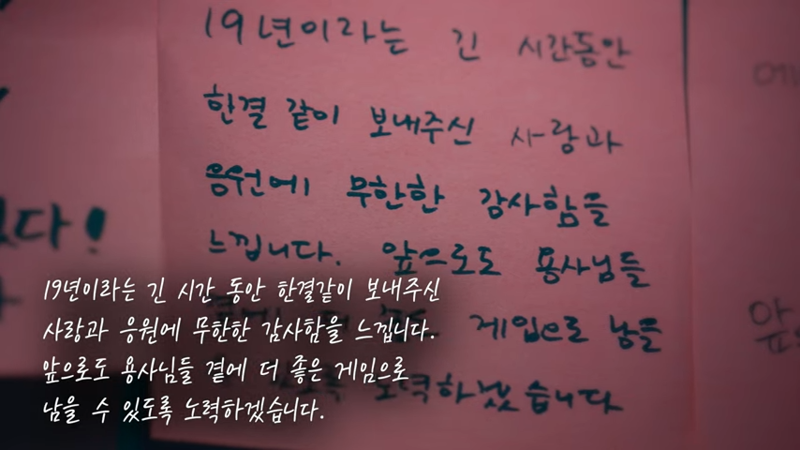 19년이라는 긴 시간동안
한결 같이 보내주신 사랑과
응원에 무한한 감사함을
느낍니다. 앞으로도 용사님들
게임으로 남을
있도록 노력하겠습니다
다!
앞
19년이라는 긴 시간 동안 한결같이 보내주신
사랑과 응원에 무한한 감사함을 느낍니다.
앞으로도 용사님들 곁에 더 좋은 게임으로
남을 수 있도록 노력하겠습니다.